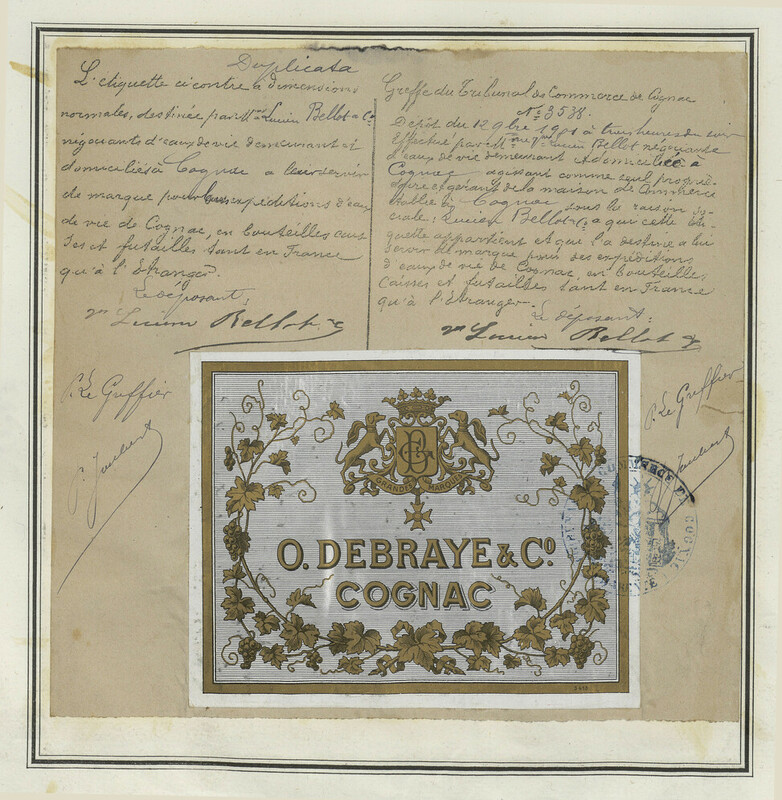 Duplicata
L'étiquette ci contre à dimensions
normales, destinée par Mr Lucien Bellot & Co
négociants d'eaux de vie demeurant et
domiciliés à Cognac a leur servir
de marque pour leurs expéditions d'eaux
de vie de Cognac, en bouteilles, cais
ses et futailles tant en France
qu'à l'Etranger.
Le déposant,
Lucien Bellot & Co
P. Le Greffier
P. Joubert
Greffe du Tribunal de Commerce de Cognac
No 3538.
Dépôt du 12 9bre 1901 à trois heures du soir
Effectué par Lucien Bellot négociante
d'eaux de vie demeurant et domiciliée à
Cognac agissant comme seul proprié-
taire et gérant de la maison de Commerce
établie à Cognac sous la raison so-
ciale; Lucien Bellot & Co a qui cette éti-
quette appartient et que l'a destine a lui
servir de marque pour des expéditions
d'eaux de vie de Cognac, en bouteilles,
caisses et futailles tant en France
qu'à l'étranger.
Le déposant:
Lucien Bellot & Co
P. Le Greffier
Joubert
GRANDE MARQUE
O. DEBRAYE & Co
COGNAC
COMMERCE DE COGNAC